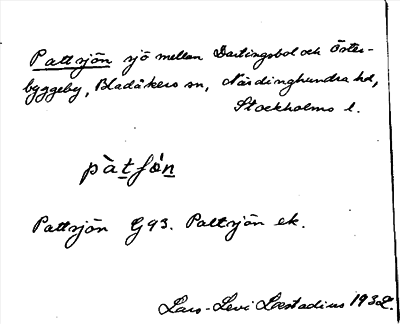 Pattsjön sjö mellan Dartingsbol och Öster-
byggeby, Bladåkers sn, Närdinghundra hd,
Stockholms l.
pàtʃö́n
Pattsjön G93. Pattsjön ek.
Lars-Levi Læstadius 1932.